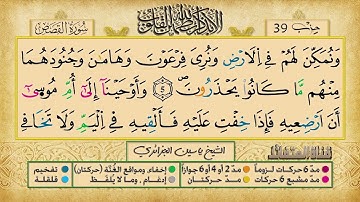 حِزب 39
ألا بذكر الله تطمئن القلوب
سُورَةُ القَصَصِ
وَنُمَكِّنَ لَهُمْ فِي اِلَارْضِ وَنُرِيَ فِرْعَوْنَ وَهَامَٰنَ وَجُنُودَهُمَا
مِنْهُم مَّا كَانُواْ يَحْذَرُونَۖ 5 وَأَوْحَيْنَا إِلَىٰ أُمِّ مُوسَىٰ
أَنَ اَرْضِعِيهِ فَإِذَا خِفْتِ عَلَيْهِ فَأَلْقِيهِ فِي اِلْيَمِّ وَلَا تَخَافِي
الشيخ ياسين الجزائري
مدّ 6 حركات لزوماً مدّ 2 أو 4 أو 6 جوازاً إخفاء، ومواقع الغُنَّة (حركتان) تفخيم
مدّ مشبع 6 حركات مدّ حركتان إدغام، وما لا يُلفَظ قلقلة